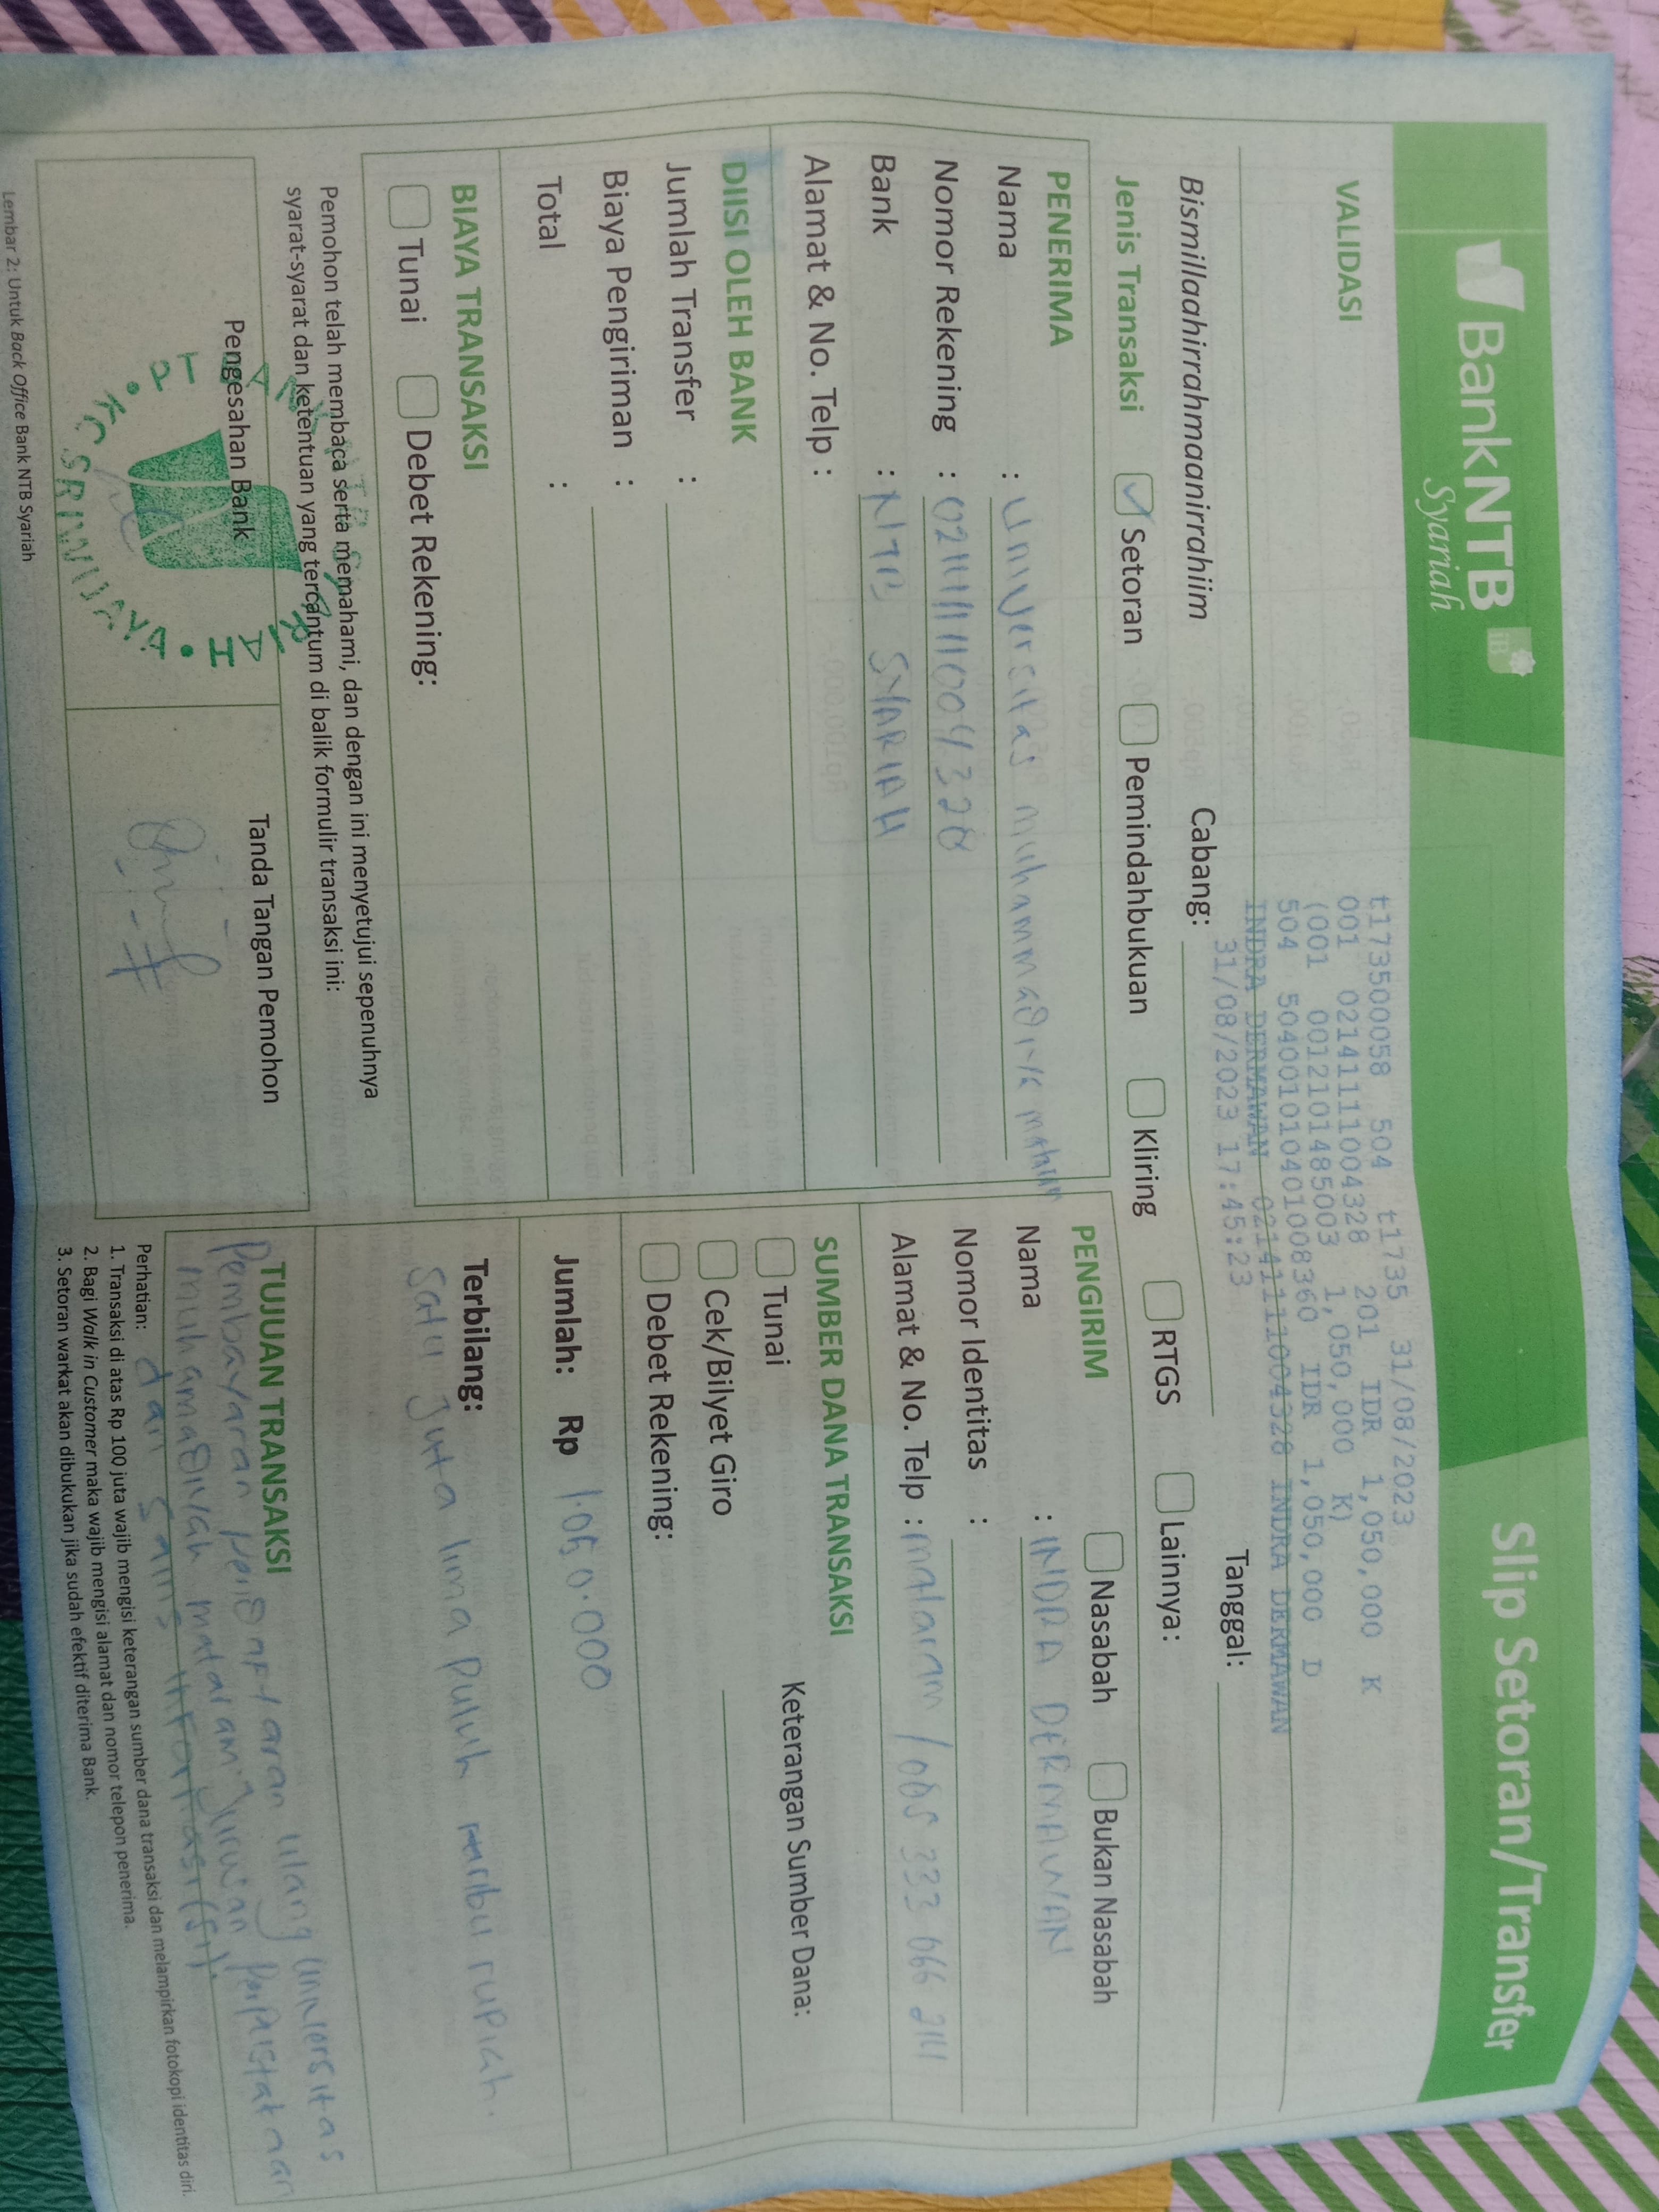 BankNTB
Syariah
Slip Setoran/Transfer
VALIDASI
t173500058 504 t1735 31/08/2023
001 021411111004328 201 IDR 1,050,000 K
(001 0012101485003 1,050,000 K)
504 5040010104010083​60 IDR 1,050,000 D
INDRA DERMAWAN 021411111004328 INDRA DERMAWAN
31/08/2023 17:45:23
Bismillaahirrahmaanirrahiim
Cabang:
Tanggal:
Jenis Transaksi
Setoran
Pemindahbukuan
Kliring
RTGS
Lainnya:
PENERIMA
Nama : Universitas muhammad
Nomor Rekening :
Bank : NTB SYARIAH
Alamat & No. Telp :
PENGIRIM
Nasabah
Bukan Nasabah
Nama : INDRA DERMAWAN
Nomor Identitas :
Alamat & No. Telp : mataram /
DIISI OLEH BANK
Jumlah Transfer :
Biaya Pengiriman :
Total :
SUMBER DANA TRANSAKSI
Tunai
Keterangan Sumber Dana:
Cek/Bilyet Giro
Debet Rekening:
Jumlah: Rp 1.050.000
Terbilang:
Satu Juta lima puluh ribu rupiah.
BIAYA TRANSAKSI
Tunai
Debet Rekening:
Pemohon telah membaca serta memahami, dan dengan ini menyetujui sepenuhnya
syarat-syarat dan ketentuan yang tercantum di balik formulir transaksi ini:
Pengesahan Bank
KC SRIWIJAYA
Tanda Tangan Pemohon
TUJUAN TRANSAKSI
Pembayaran ulang Universitas
mataram Jurusan Perpustakaan
dan Sains Informasi
Perhatian:
1. Transaksi di atas Rp 100 juta wajib mengisi keterangan sumber dana transaksi dan melampirkan fotokopi identitas diri.
2. Bagi Walk in Customer maka wajib mengisi alamat dan nomor telepon penerima.
3. Setoran warkat akan dibukukan jika sudah efektif diterima Bank.
Lembar 2: Untuk Back Office Bank NTB Syariah